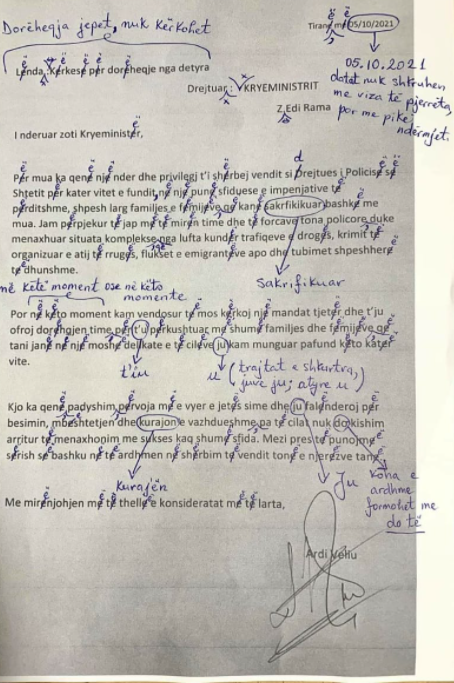 Dorëheqja jepet, nuk kërkohet
Tirane me 05/10/2021
05.10.2021
datat nuk shkruhen
me viza të pjerrëta,
por me pika
ndërmjet.
Lenda, Kerkese per doreheqje nga detyra
Drejtuar: KRYEMINISTRIT
Z.Edi Rama
I nderuar zoti Kryeminister,
d
Per mua ka qene nje nder dhe privilegj t'i sherbej vendit si Drejtues i Policise se
Shtetit per kater vitet e fundit, ne nje pune sfiduese e impenjative te
perditshme, shpesh larg familjes e femijeve qe kane sakrfikikuar bashke me
mua. Jam perpjekur te jap me te miren time dhe te forcave tona policore duke
menaxhuar situata komplekse nga lufta kunder trafiqeve e droges, krimit te
organizuar e atij te rruges, flukset e emigranteve apo dhe tubimet shpeshhere
te dhunshme.
Sakrifikuar
në këtë moment ose në këto
momente
Por ne keto moment kam vendosur te mos kerkoj nje mandat tjeter dhe t'ju
ofroj dorehgjen time per t'u perkushtuar me shume familjes dhe femijeve qe
tani jane ne nje moshe delikate e te cileve ju kam munguar pafund keto kater
vite.
t'iu
u (trajtat e shkurtra,
juve ju; atyre u)
Kjo ka qene padyshim pervoja me e vyer e jetes sime dhe ju falenderoj per
besimin, mbeshtetjen dhe kurajon e vazhdueshme pa te cilat nuk do kishim
arritur te menaxhonim me sukses kaq shume sfida. Mezi pres te punojme
serish se bashku ne te ardhmen ne sherbim te vendit tone e njerezve tane.
kurajën
Ju
Koha e
ardhme
formohet me
do të
Me mirenjohjen me te thelle e konsideratat me te larta,
Ardi Veliu